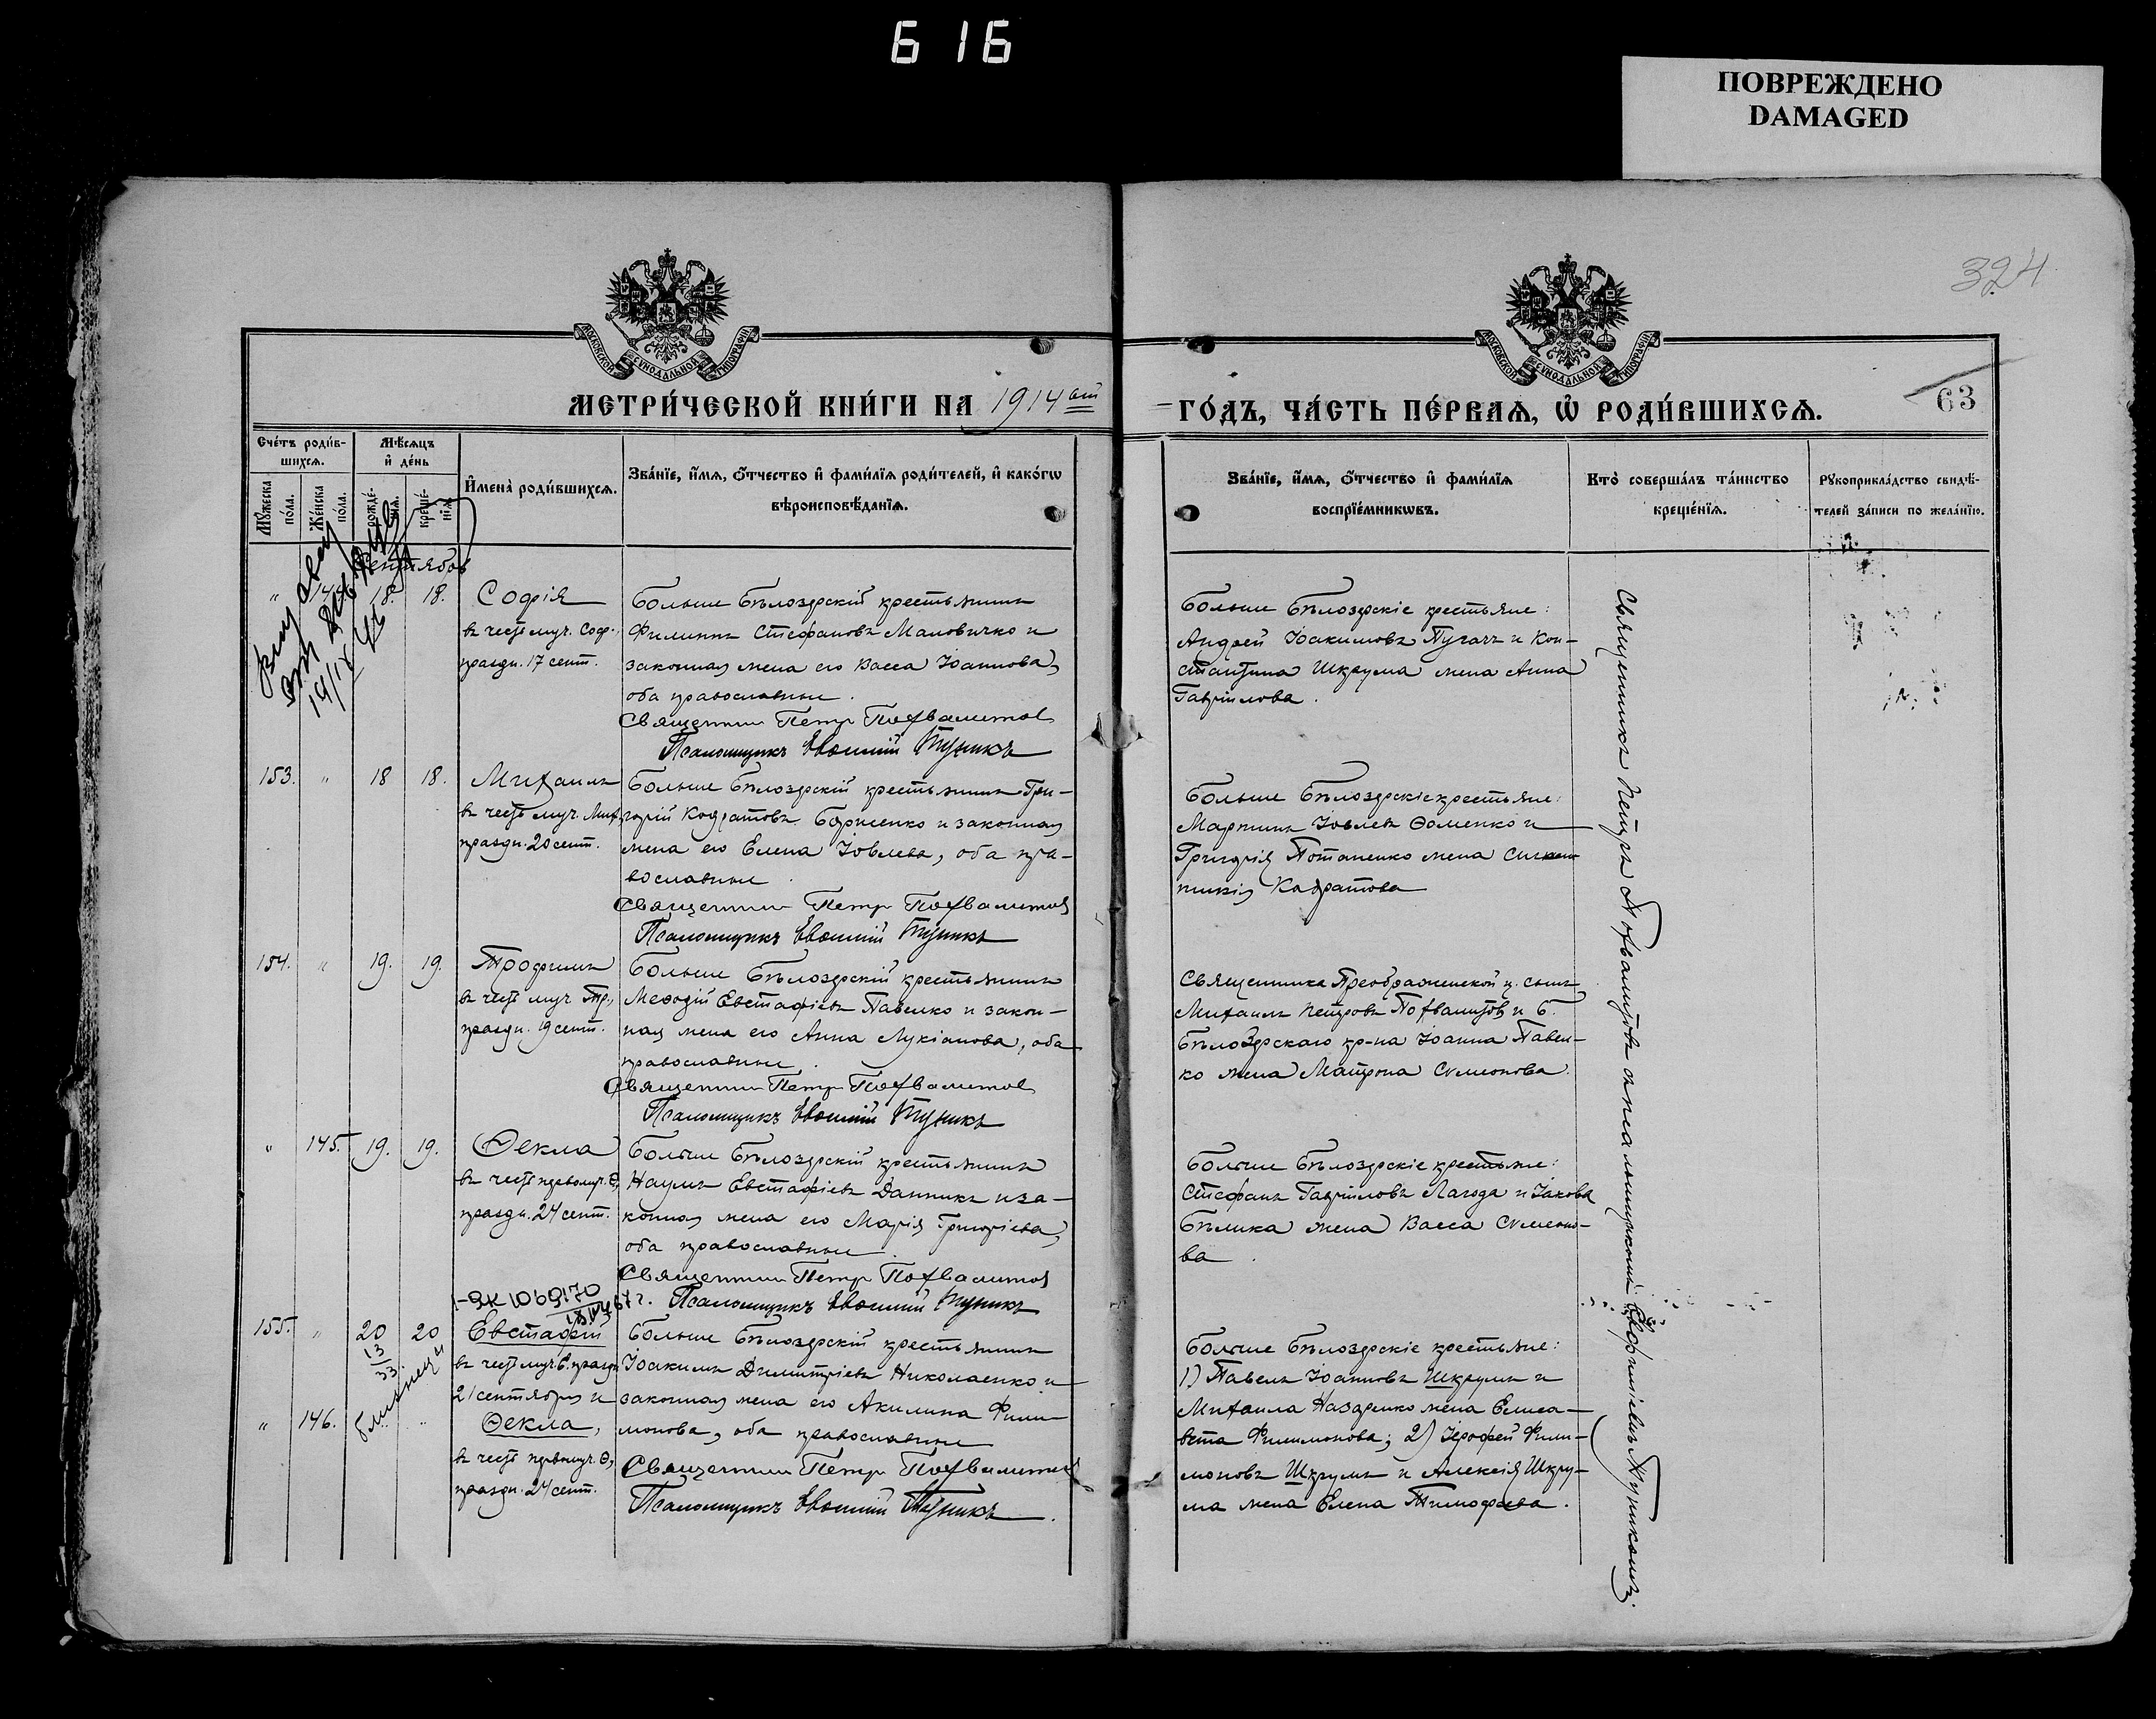 616
ПОВРЕЖДЕНО
DAMAGED
324
МОСКОВСКОЙ СѴНОДАЛЬНОЙ ТИПОГРАФІИ
МОСКОВСКОЙ СѴНОДАЛЬНОЙ ТИПОГРАФІИ
МЕТРИ́ЧЕСКОЙ КНИ́ГИ НА 1914 ый
ГО́ДЪ, ЧА́СТЬ ПЕ́РВАѦ, Ѡ҆ РОДИ́ВШИХСѦ.
63
Сче́тъ роди́в-
шихсѧ.
Мѣ́сѧцъ
и҆ де́нь
Мꙋ́жеска по́ла.
Же́нска по́ла.
рожде́-
нїѧ.
креще́-
нїѧ.
И҆мена̀ роди́вшихсѧ.
Зва́нїе, и҆́мѧ, ѻ҆́тчество и҆ фами́лїѧ роди́телей, и҆ како́гѡ
вѣроисповѣ́данїѧ.
Зва́нїе, и҆́мѧ, ѻ҆́тчество и҆ фами́лїѧ
воспрїе́мникѡвъ.
Кто̀ соверша́лъ та́инство
креще́нїѧ.
Рꙋкоприкла́дство свидѣ́-
телей за́писи по жела́нїю.
Сентябрь
" 18. 18. Софія
въ честь муч. Соф.,
праздн. 17 сент.
Больше Бѣлозерскій крестьянинъ
Филиппъ Стефановъ Маловичко и
законная жена его Васса Іоаннова,
оба православные.
Священникъ Петръ Похвалитовъ
Псаломщикъ Евѳимій Туникъ
Больше Бѣлозерскіе крестьяне:
Андрей Іоакимовъ Пугачъ и Кон-
стантина Шкрума жена Анна
Гавріилова.
153. " 18 18. Михаилъ
въ честь муч. Мих.,
праздн. 20 сент.
Больше Бѣлозерскій крестьянинъ Гри-
горій Кодратовъ Борженко и законная
жена его Елена Іовлева, оба пра-
вославные.
Священникъ Петръ Похвалитовъ
Псаломщикъ Евѳимій Туникъ
Больше Бѣлозерскіе крестьяне:
Мартинъ Іовлевъ Ѳоменко и
Григорія Потапенко жена
Кодратова
154. " 19. 19. Трофимъ
въ честь муч. Тр.,
праздн. 19 сент.
Больше Бѣлозерскій крестьянинъ
Меѳодій Евстафіевъ Павенко и закон-
ная жена его Анна Лукіанова, оба
православные.
Священникъ Петръ Похвалитовъ
Псаломщикъ Евѳимій Туникъ
Священника Преображенской ц. сынъ
Михаилъ Петровъ Похвалитовъ и Б.
Бѣлозерскаго кр-на Іоанна Павен-
ко жена Матрона Сѵмеонова.
" 145. 19. 19. Ѳекла
въ честь первомуч. Ѳ,
праздн. 24 сент.
Больше Бѣлозерскій крестьянинъ
Наумъ Евстафіевъ Данникъ и за-
конная жена его Марія Григоріева,
оба православные.
Священникъ Петръ Похвалитовъ
Псаломщикъ Евѳимій Туникъ
Больше Бѣлозерскіе крестьяне:
Стефанъ Гавріиловъ Лагода и Іакова
Бѣлика жена Васса Сѵмеоно-
ва.
I-ЯК 1069170
155. " 20 20 Евстафій
13
33.
близнецы
въ честь муч. Е. праздн.
21 сентября и
" 146. " " Ѳекла,
въ честь первомуч. Ѳ,
праздн. 24 сент.
Больше Бѣлозерскій крестьянинъ
Іоакимъ Димитріевъ Николаенко и
законная жена его Акилина Фили-
монова, оба православные
Священникъ Петръ Похвалитовъ
Псаломщикъ Евѳимій Туникъ.
Больше Бѣлозерскіе крестьяне:
1) Павелъ Іоанновъ Шкрумъ и
Михаила Назаренко жена Елиса-
вета Филимонова; 2) Іерофей Фили-
моновъ Шкрумъ и Алексія Шкру-
ма жена Елена Тимофеева.
Священникъ Петръ Похвалитовъ съ псаломщикомъ Евфиміемъ Туникомъ.